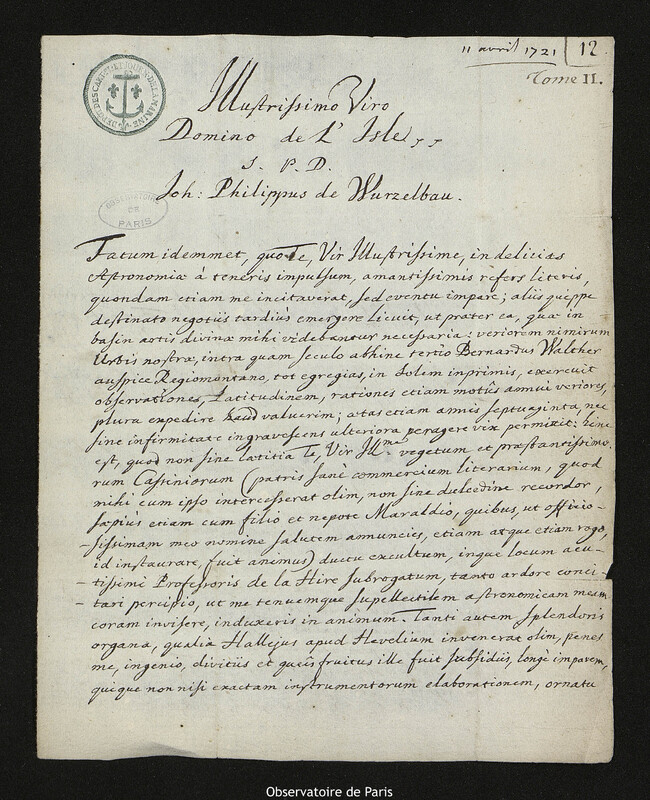 11 avril 1721
12
Tome II.
DEPOT DES CARTES ET JOURN. DE LA MARINE
Illustrissimo Viro
Domino de L'Isle
S. P. D.
Joh: Philippus de Wurzelbau.
OBSERVATOIRE
DE
PARIS
Fatum idemmet, quo Te, Vir Illustrissime, in delicias
Astronomiæ à teneris impulsum, amantissimis refers literis,
quondam etiam me incitaverat, sed eventu impare; aliis quippe
destinato negotiis tardius emergere licuit, ut præter ea, quæ in
basin artis divinæ mihi videbantur necessaria: veriorem nimirum
Urbis nostræ, intra quam seculo abhinc tertio Bernardus Walther
auspice Regiomontano, tot egregias, in Solem inprimis, exercuit
observationes, Latitudinem, rationes etiam motûs annui veriores,
plura expedire haud valuerim; ætas etiam annis septuaginta, nec
sine infirmitate ingravescens ulteriora peragere vix permisit: hinc
est, quod non sine lætitia Te, Vir Ill.me vegetum et præstantissimo-
rum Cassiniorum (patris sanè commercium literarium, quod
mihi cum ipso intercesserat olim, non sine dulcedine recordor,
sæpius etiam cum filio et nepote Maraldio, quibus, ut officio-
-sissimam meo nomine salutem annuncies, etiam atque etiam rogo,
id instaurare, fuit animus) ductu excultum, inque locum acu-
-tissimi Professoris de la Hire subrogatum, tanto ardore conci-
-tari percipio, ut me tenuemque supellectilem astronomicam meam
coram invisere, induxeris in animum. Tanti autem splendoris
organa, qualia Hallejus apud Hevelium invenerat olim, penes
me, ingenio, divitiis et queis fruitus ille fuit subsidiis, longè imparem,
quique non nisi exactam instrumentorum elaborationem, ornatu
Observatoire de Paris